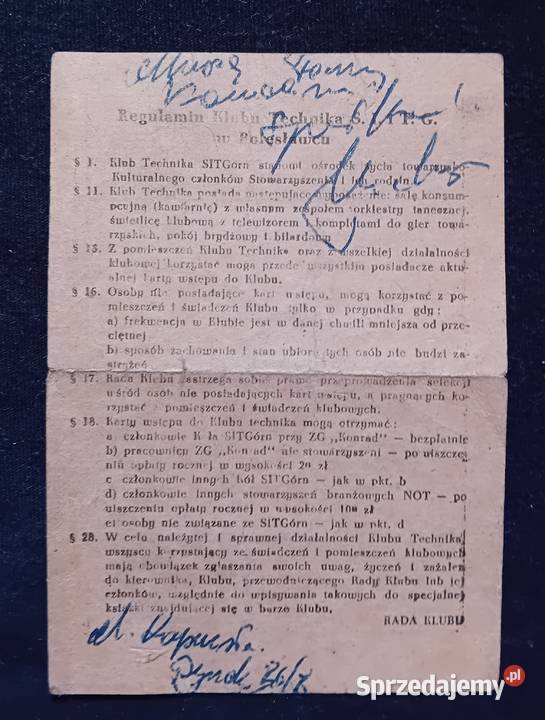 Regulamin Klubu Technika S. I. T. G.
w Bolesławcu
§ 1. Klub Technika SITGórn stanowi ośrodek życia towarzysko
Kulturalnego członków Stowarzyszenia i ich rodzin.
§ 11. Klub Technika posiada następujące wyposażenie: salę konsum-
pcyjną (kawiarnię) z własnym zespołem orkiestry tanecznej,
świetlicę klubową z telewizorem i kompletami do gier towa-
rzyskich, pokój brydżowy i bilardowy
§ 15. Z pomieszczeń Klubu Technika oraz z wszelkiej działalności
klubowej korzystać mogą przede wszystkim posiadacze aktu-
alnej karty wstępu do Klubu.
§ 16. Osoby nie posiadające kart wstępu, mogą korzystać z po-
mieszczeń i świadczeń Klubu tylko w przypadku gdy:
a) frekwencja w Klubie jest w danej chwili mniejsza od prze-
ciętnej
b) sposób zachowania i stan ubioru tych osób nie budzi za-
strzeżeń
§ 17. Rada Klubu zastrzega sobie prawo przeprowadzenia selekcji
wśród osób nie posiadających kart wstępu, a pragnących ko-
rzystać z pomieszczeń i świadczeń klubowych.
§ 18. Karty wstępu do Klubu technika mogą otrzymać:
a członkowie Koła SITGórn przy ZG „Konrad" — bezpłatnie
b) pracownicy ZG „Konrad" nie stowarzyszeni — po uiszcze-
niu opłaty rocznej w wysokości 20 zł
c członkowie innych kół SITGórn — jak w pkt. b
d) członkowie innych stowarzyszeń branżowych NOT — po
uiszczeniu opłaty rocznej w wysokości 100 zł
e) osoby nie związane ze SITGórn — jak w pkt. d
§ 28. W celu należytej i sprawnej działalności Klubu Technika,
wszyscy korzystający ze świadczeń i pomieszczeń klubowych
mają obowiązek zgłaszania swoich uwag, życzeń i zażaleń
do kierownika, Klubu, przewodniczącego Rady Klubu lub jej
członków, względnie do wpisywania takowych do specjalnej
książki znajdującej się w barze Klubu.
RADA KLUBU
Sprzedajemy.pl